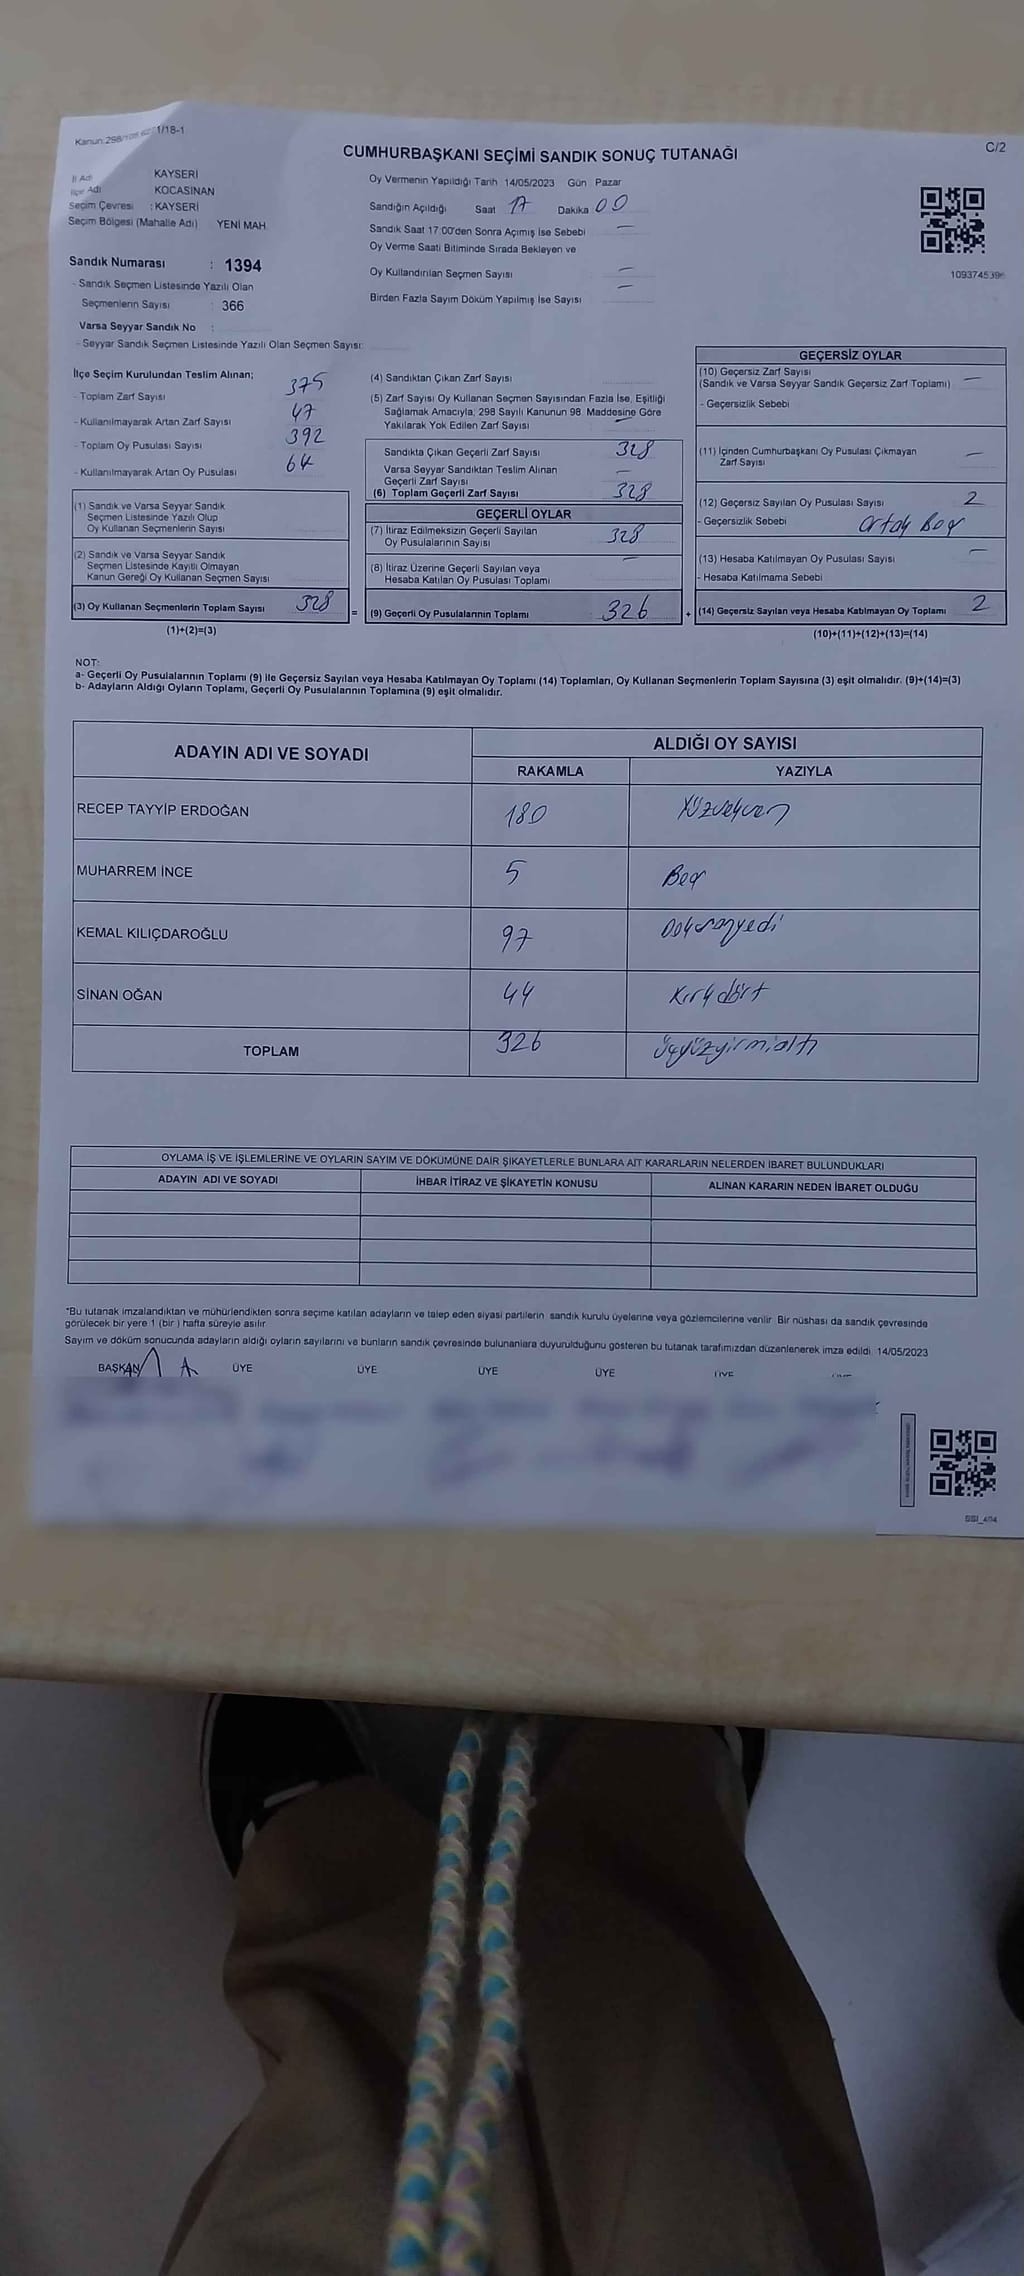 Kanun:298/105 6271/18-1
C/2
CUMHURBAŞKANI SEÇİMİ SANDIK SONUÇ TUTANAĞI
İl Adı KAYSERİ
İlçe Adı KOCASİNAN
Seçim Çevresi : KAYSERİ
Seçim Bölgesi (Mahalle Adı) YENİ MAH.
Sandık Numarası : 1394
- Sandık Seçmen Listesinde Yazılı Olan
Seçmenlerin Sayısı : 366
Varsa Seyyar Sandık No :
- Seyyar Sandık Seçmen Listesinde Yazılı Olan Seçmen Sayısı:
Oy Vermenin Yapıldığı Tarih 14/05/2023 Gün Pazar
Sandığın Açıldığı Saat 17 Dakika 00
Sandık Saat 17:00'den Sonra Açımış İse Sebebi —
Oy Verme Saati Bitiminde Sırada Bekleyen ve
Oy Kullandırılan Seçmen Sayısı —
Birden Fazla Sayım Döküm Yapılmış İse Sayısı —
İlçe Seçim Kurulundan Teslim Alınan;
- Toplam Zarf Sayısı 375
- Kullanılmayarak Artan Zarf Sayısı 47
- Toplam Oy Pusulası Sayısı 392
- Kullanılmayarak Artan Oy Pusulası 64
(1) Sandık ve Varsa Seyyar Sandık
Seçmen Listesinde Yazılı Olup
Oy Kullanan Seçmenlerin Sayısı
(2) Sandık ve Varsa Seyyar Sandık
Seçmen Listesinde Kayıtlı Olmayan
Kanun Gereği Oy Kullanan Seçmen Sayısı
(3) Oy Kullanan Seçmenlerin Toplam Sayısı 328
(1)+(2)=(3)
(4) Sandıktan Çıkan Zarf Sayısı
(5) Zarf Sayısı Oy Kullanan Seçmen Sayısından Fazla İse, Eşitliği
Sağlamak Amacıyla, 298 Sayılı Kanunun 98. Maddesine Göre
Yakılarak Yok Edilen Zarf Sayısı —
Sandıkta Çıkan Geçerli Zarf Sayısı 328
Varsa Seyyar Sandıktan Teslim Alınan
Geçerli Zarf Sayısı —
(6) Toplam Geçerli Zarf Sayısı 328
GEÇERLİ OYLAR
(7) İtiraz Edilmeksizin Geçerli Sayılan
Oy Pusulalarının Sayısı 328
(8) İtiraz Üzerine Geçerli Sayılan veya
Hesaba Katılan Oy Pusulası Toplamı —
= (9) Geçerli Oy Pusulalarının Toplamı 326
GEÇERSİZ OYLAR
(10) Geçersiz Zarf Sayısı
(Sandık ve Varsa Seyyar Sandık Geçersiz Zarf Toplamı) —
- Geçersizlik Sebebi
(11) İçinden Cumhurbaşkanı Oy Pusulası Çıkmayan
Zarf Sayısı —
(12) Geçersiz Sayılan Oy Pusulası Sayısı 2
- Geçersizlik Sebebi
(13) Hesaba Katılmayan Oy Pusulası Sayısı —
- Hesaba Katılmama Sebebi
+ (14) Geçersiz Sayılan veya Hesaba Katılmayan Oy Toplamı 2
(10)+(11)+(12)+(13)=(14)
NOT:
a- Geçerli Oy Pusulalarının Toplamı (9) ile Geçersiz Sayılan veya Hesaba Katılmayan Oy Toplamı (14) Toplamları, Oy Kullanan Seçmenlerin Toplam Sayısına (3) eşit olmalıdır. (9)+(14)=(3)
b- Adayların Aldığı Oyların Toplamı, Geçerli Oy Pusulalarının Toplamına (9) eşit olmalıdır.
ADAYIN ADI VE SOYADI
ALDIĞI OY SAYISI
RAKAMLA YAZIYLA
RECEP TAYYİP ERDOĞAN 180 Yüzseksen
MUHARREM İNCE 5 Beş
KEMAL KILIÇDAROĞLU 97 Doksanyedi
SİNAN OĞAN 44 Kırkdört
TOPLAM 326 üçyüzyirmialtı
OYLAMA İŞ VE İŞLEMLERİNE VE OYLARIN SAYIM VE DÖKÜMÜNE DAİR ŞİKAYETLERLE BUNLARA AİT KARARLARIN NELERDEN İBARET BULUNDUKLARI
ADAYIN ADI VE SOYADI İHBAR İTİRAZ VE ŞİKAYETİN KONUSU ALINAN KARARIN NEDEN İBARET OLDUĞU
*Bu tutanak imzalandıktan ve mühürlendikten sonra seçime katılan adayların ve talep eden siyasi partilerin sandık kurulu üyelerine veya gözlemcilerine verilir. Bir nüshası da sandık çevresinde
görülecek bir yere 1 (bir) hafta süreyle asılır.
Sayım ve döküm sonucunda adayların aldığı oyların sayılarını ve bunların sandık çevresinde bulunanlara duyurulduğunu gösteren bu tutanak tarafımızdan düzenlenerek imza edildi. 14/05/2023
BAŞKAN ÜYE ÜYE ÜYE ÜYE ÜYE